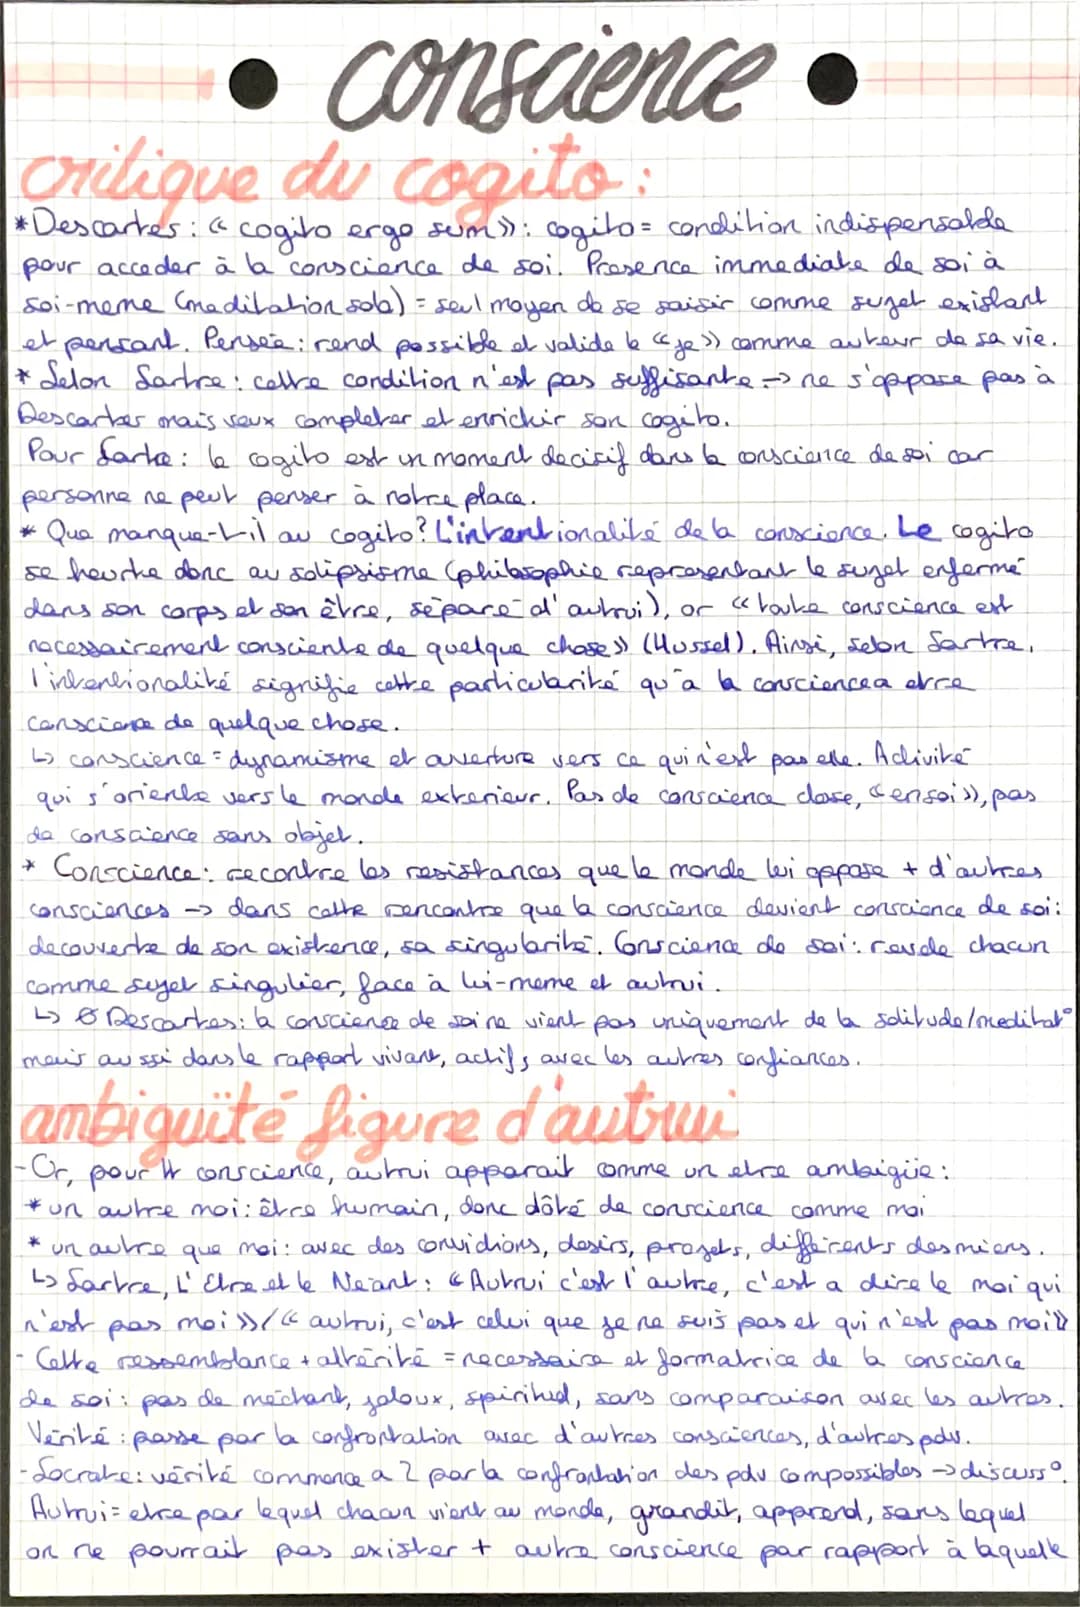 conscience
critique du cogito :
*Descartes : « cogito ergo sum » : cogito = condition indispensable
pour acceder à la conscience de soi. Presence immediate de soi à
soi-meme (meditation solo) = seul moyen de se saisir comme sujet existant
et pensant. Pensée : rend possible et valide le « je » comme auteur de sa vie.
* Selon Sartre : cette condition n'est pas suffisante -> ne s'oppose pas à
Descartes mais veux completer et enrichir son cogito.
Pour Sartre : le cogito est un moment decisif dans la conscience de soi car
personne ne peut penser à notre place.
* Que manque-t-il au cogito? L'intentionalité de la conscience. Le cogito
se heurte donc au solipsisme (philosophie representant le sujet enfermé
dans son corps et son être, séparé d'autrui), or « toute conscience est
necessairement consciente de quelque chose » (Hussel). Ainsi, selon Sartre,
l'intentionalité signifie cette particularité qu'a la conscience a etre
conscience de quelque chose.
↳ conscience = dynamisme et ouverture vers ce qui n'est pas elle. Activité
qui s'oriente vers le monde exterieur. Pas de conscience close, « en soi », pas
de conscience sans objet.
* Conscience : recontre les resistances que le monde lui oppose + d'autres
consciences -> dans cette rencontre que la conscience devient conscience de soi :
decouverte de son existence, sa singularité. Conscience de soi : revele chacun
comme sujet singulier, face à lui-meme et autrui.
↳ Descartes : la conscience de soi ne vient pas uniquement de la solitude/meditat°
mais aussi dans le rapport vivant, actif, avec les autres confiances.
ambiguïté figure d'autrui
- Or, pour tt conscience, autrui apparait comme un etre ambigüe :
* un autre moi : être humain, donc dôté de conscience comme moi
* un autre que moi : avec des convictions, desirs, projets, différents des miens.
↳ Sartre, L'Etre et le Néant : « Autrui c'est l'autre, c'est a dire le moi qui
n'est pas moi »/« autrui, c'est celui que je ne suis pas et qui n'est pas moi »
- Cette ressemblance + altérité = necessaire et formatrice de la conscience
de soi : pas de méchant, jaloux, spirituel, sans comparaison avec les autres.
Vérité : passe par la confrontation avec d'autres consciences, d'autres pdv.
- Socrate : vérité commence a 2 par la confrontation des pdv compossibles -> discuss°.
Autrui = etre par lequel chacun vient au monde, grandit, apprend, sans lequel
on ne pourrait pas exister + autre conscience par rapport à laquelle